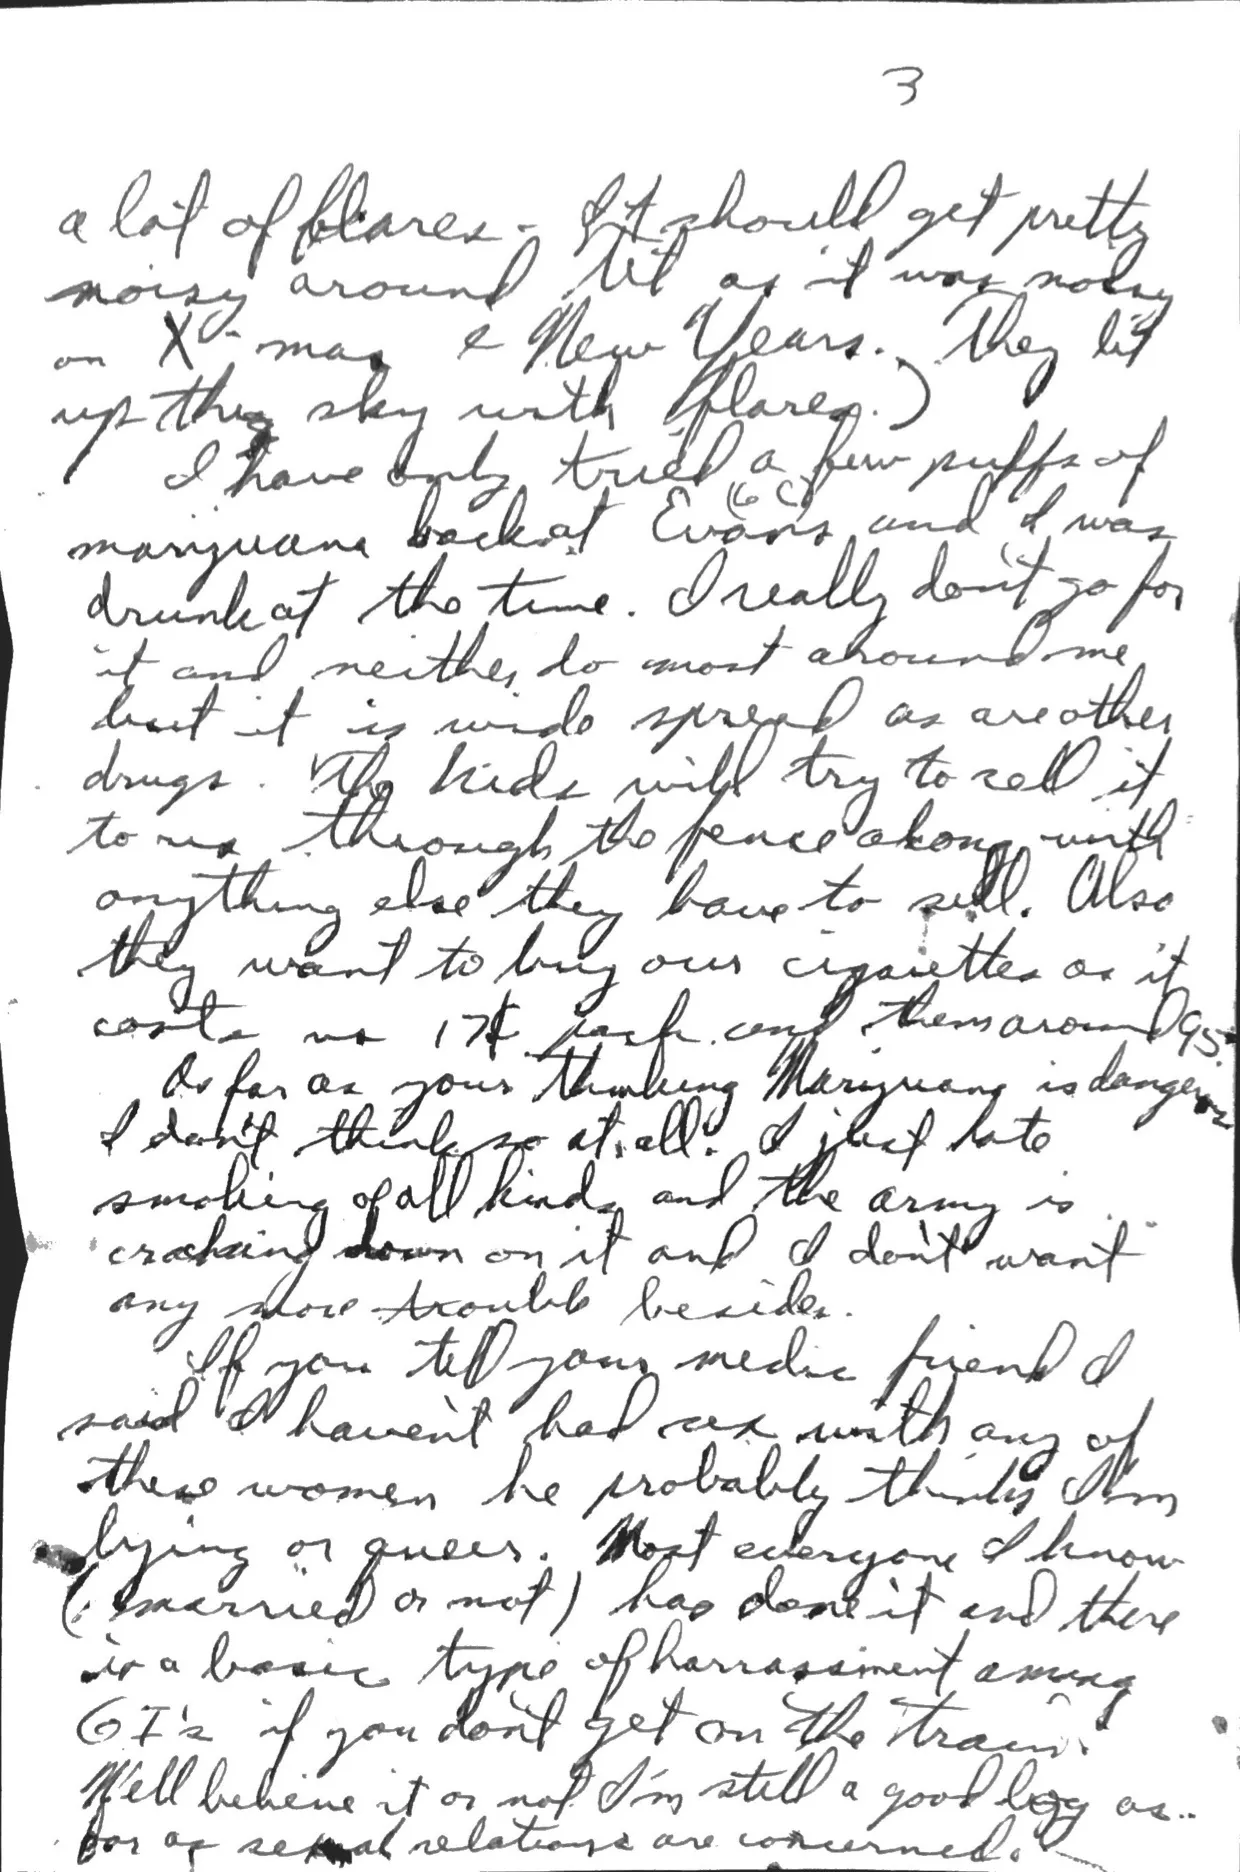 3
a lot of flares - It should get pretty
noisy around Tét as it was noisy
on X-mas & New Years. They lit
up the sky with flares.)
I have only tried a few puffs of
marijuana back at Evans and I was
drunk at the time. I really don't go for
it and neither do most around me
but it is wide spread as are other
drugs. The kids will try to sell it
to us through the fence along with
anything else they have to sell. Also
they want to buy our cigarettes as it
costs us 17¢ pack and them around 95.
As far as your thinking Marijuana is dangerous
I don't think so at all. I just hate
smoking of all kinds and the army is
cracking down on it and I don't want
any more trouble besides.
If you tell your medic friend I
said I haven't had sex with any of
these women he probably thinks I'm
lying or queer. Most everyone I know
(married or not) has done it and there
is a basic type of harrassment among
GI's if you don't get on the train.
Well believe it or not I'm still a good boy as
far as sexual relations are concerned.